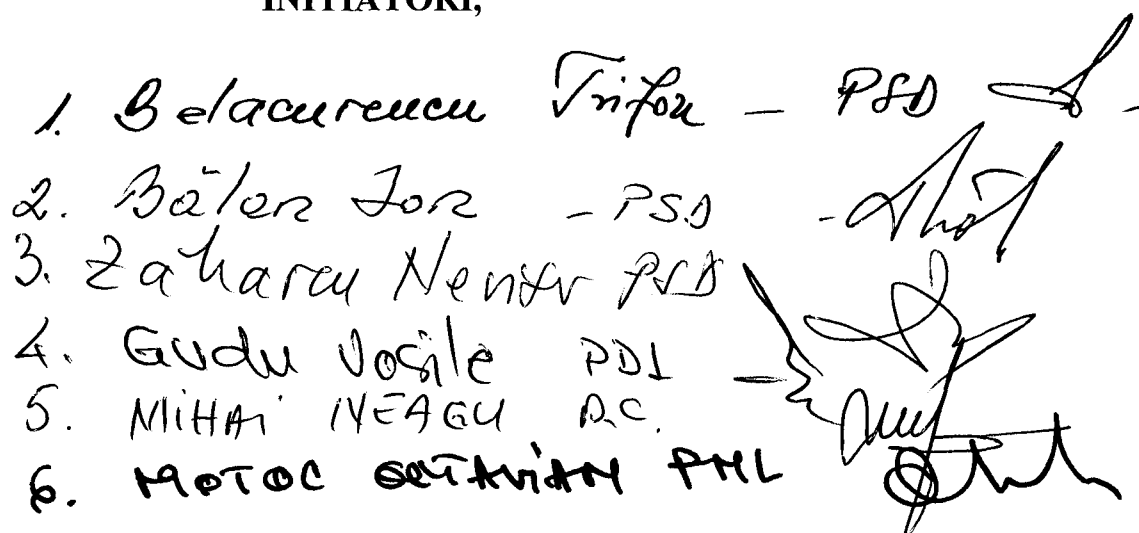 INIȚIATORI,
1. Belacurencu Trifon – PSD –
2. Bălan Ion - PSD -
3. Zaharcu Neviser PSD
4. Gudu Vasile PDL –
5. MIHAI NEAGU P.C.
6. MOTOC OCTAVIAN PNL